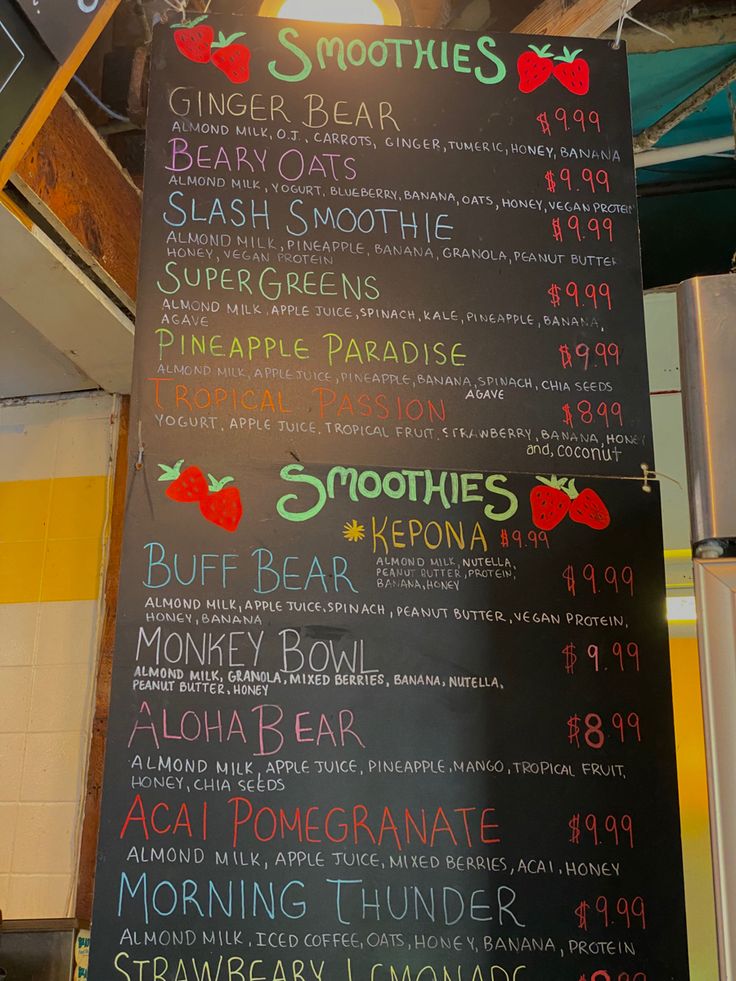 SMOOTHIES
GINGER BEAR $9.99
ALMOND MILK, O.J., CARROTS, GINGER, TUMERIC, HONEY, BANANA
BEARY OATS $9.99
ALMOND MILK, YOGURT, BLUEBERRY, BANANA, OATS, HONEY, VEGAN PROTEIN
SLASH SMOOTHIE $9.99
ALMOND MILK, PINEAPPLE, BANANA, GRANOLA, PEANUT BUTTER
HONEY, VEGAN PROTEIN
SUPER GREENS $9.99
ALMOND MILK, APPLE JUICE, SPINACH, KALE, PINEAPPLE, BANANA,
AGAVE
PINEAPPLE PARADISE $9.99
ALMOND MILK, APPLE JUICE, PINEAPPLE, BANANA, SPINACH, CHIA SEEDS
AGAVE
TROPICAL PASSION $8.99
YOGURT, APPLE JUICE, TROPICAL FRUIT, STRAWBERRY, BANANA, HONEY
and, coconut
SMOOTHIES
*KEPONA $9.99
ALMOND MILK, NUTELLA,
PEANUT BUTTER, PROTEIN,
BANANA, HONEY
BUFF BEAR $9.99
ALMOND MILK, APPLE JUICE, SPINACH, PEANUT BUTTER, VEGAN PROTEIN,
HONEY, BANANA
MONKEY BOWL $9.99
ALMOND MILK, GRANOLA, MIXED BERRIES, BANANA, NUTELLA,
PEANUT BUTTER, HONEY
ALOHA BEAR $8.99
ALMOND MILK, APPLE JUICE, PINEAPPLE, MANGO, TROPICAL FRUIT,
HONEY, CHIA SEEDS
ACAI POMEGRANATE $9.99
ALMOND MILK, APPLE JUICE, MIXED BERRIES, ACAI, HONEY
MORNING THUNDER $9.99
ALMOND MILK, ICED COFFEE, OATS, HONEY, BANANA, PROTEIN
STRAWBEARY LEMONADE